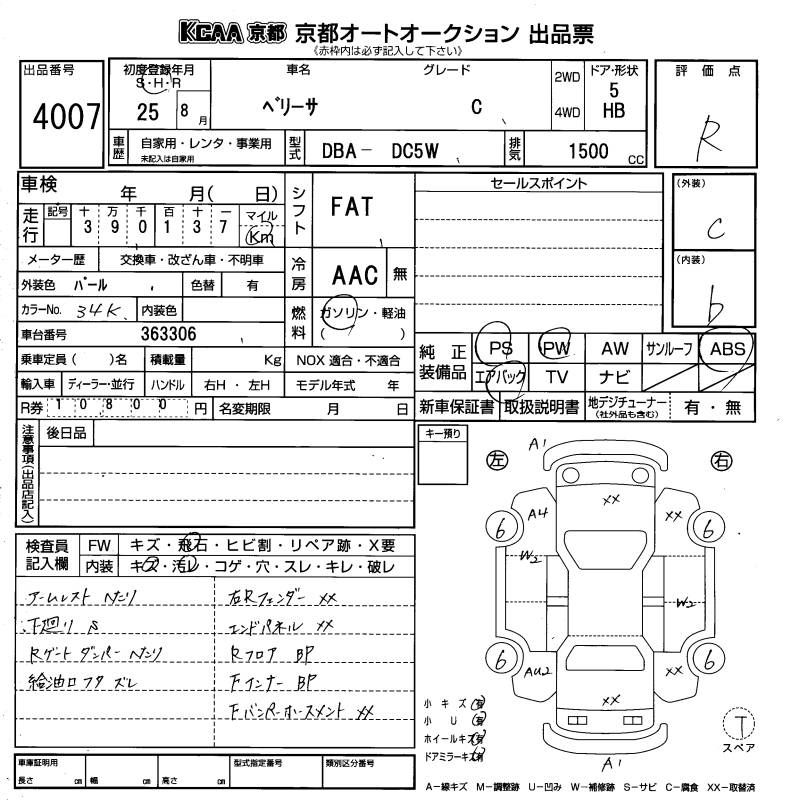 KCAA 京都 京都オートオークション 出品票
《赤枠内は必ず記入して下さい》
出品番号
4007
初度登録年月
S・H・R
25 8 月
車名
ベリーサ
グレード
C
2WD
4WD
ドア・形状
5
HB
評価点
R
車歴
自家用・レンタ・事業用
未記入は自家用
型式
DBA- DC5W
排気
1500 cc
車検 年 月( 日)
走行
記号 十 万 千 百 十 一
3 9 0 1 3 7
マイル
Km
シフト
FAT
セールスポイント
(外装)
C
(内装)
b
メーター歴 交換車・改ざん車・不明車
冷房
AAC 無
外装色 パール 色替 有
カラーNo. 34K 内装色
燃料
ガソリン・軽油
( )
車台番号 363306
乗車定員( )名 積載量 Kg NOX 適合・不適合
輸入車 ディーラー・並行 ハンドル 右H・左H モデル年式 年
R券 10800 円 名変期限 月 日
純正装備品
PS PW AW サンルーフ ABS
エアバック TV ナビ
新車保証書 取扱説明書 地デジチューナー
(社外品も含む)
有・無
注意事項(出品店記入)
後日品
キー預り
検査員記入欄
FW キズ・飛石・ヒビ割・リペア跡・X要
内装 キズ・汚レ・コゲ・穴・スレ・キレ・破レ
アームレスト ヘタリ 右Rフェンダー XX
下廻り S エンドパネル XX
Rゲートダンパー ヘタリ Rフロア BP
給油口フタ ズレ Fインナー BP
Fバンパーホースメント XX
左 右
A1
XX
A4 XX
6 6
W2
W2
6 6
AU2 XX
XX
A1
小キズ(有)
小U(有)
ホイールキズ(有)
ドアミラーキズ(有)
T
スペア
車庫証明用
長さ cm 幅 cm 高さ cm
型式指定番号
類別区分番号
A−線キズ M−調整跡 U−凹み W−補修跡 S−サビ C−腐食 XX−取替済